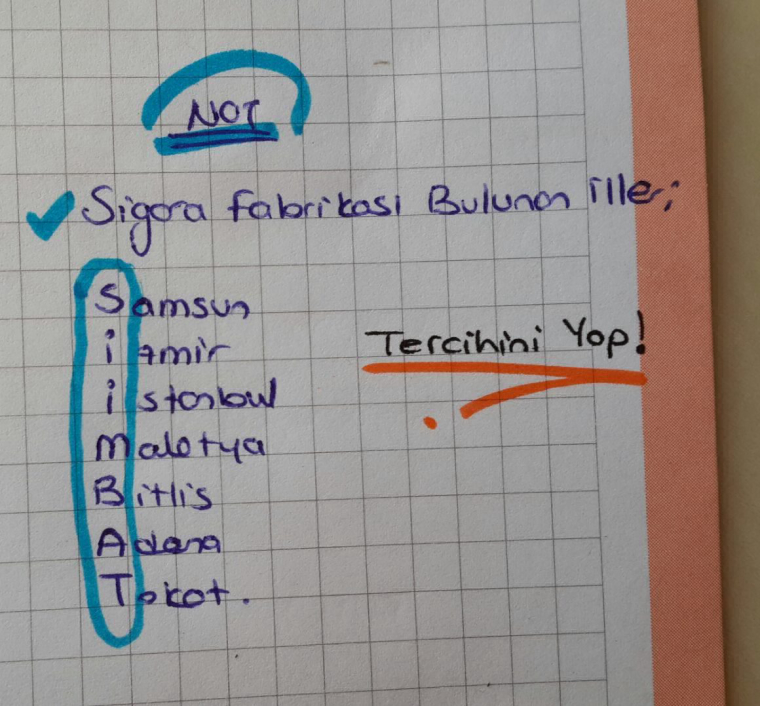 NOT
Sigara fabrikası Bulunan iller;
Samsun
izmir
istanbul
Malatya
Bitlis
Adana
Tokat.
Tercihini Yap!